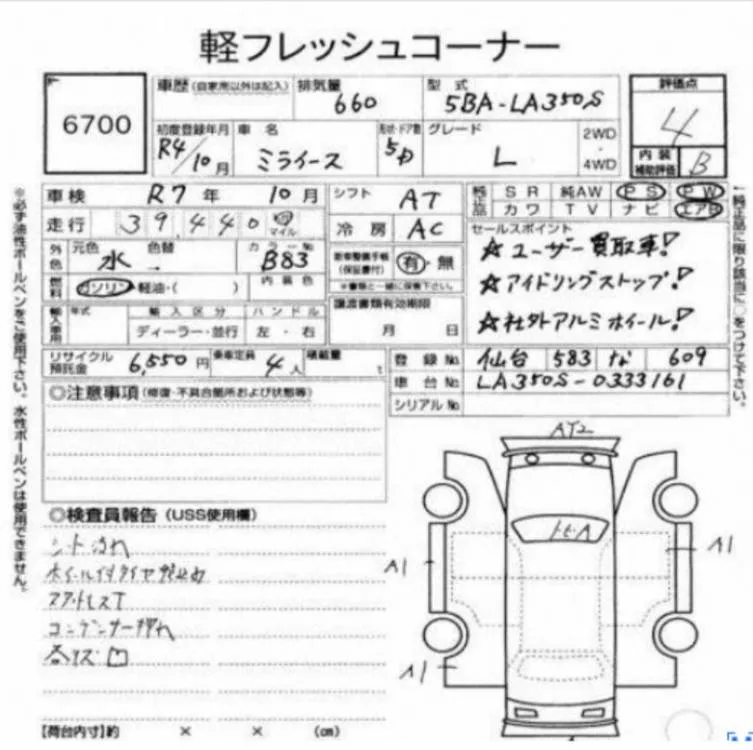 軽フレッシュコーナー
6700
車歴 (自家用以外は記入)
排気量
660
型式
5BA-LA350S
評価点
4
初度登録年月
R4/10月
車名
ミライース
形状・ドア数
5D
グレード
L
2WD
4WD
内装
補助評価
B
車検 R7年 10月
シフト AT
純正品
SR 純AW PS PW
カワ TV ナビ エアB
走行 39,440 マイル
冷房 AC
セールスポイント
☆ユーザー買取車!
☆アイドリングストップ!
☆社外アルミホイール!
外色
元色 水
色替
カラーNo B83
(保証書付)
有・無
※書類と一緒に保管下さい。
燃料
ガソリン・軽油・( )
内装色
譲渡書類有効期限
月 日
輸入車用
年式
輸入区分
ディーラー・並行
ハンドル
左・右
リサイクル預託金 6,550円
乗車定員 4人
積載量 t
登録No. 仙台 583 な 609
車台No. LA350S-0333161
シリアルNo.
◎注意事項 (修復・不具合箇所および状態等)
◎検査員報告 (USS使用欄)
シート汚れ
コンデンサー押れ
各キズ凹
AY2
トビA
A1
A1
A1
【荷台内寸】約 × × (cm)
※必ず油性ボールペンをご使用下さい。水性ボールペンは使用できません。
↑純正品に限り該当に○をつけて下さい。